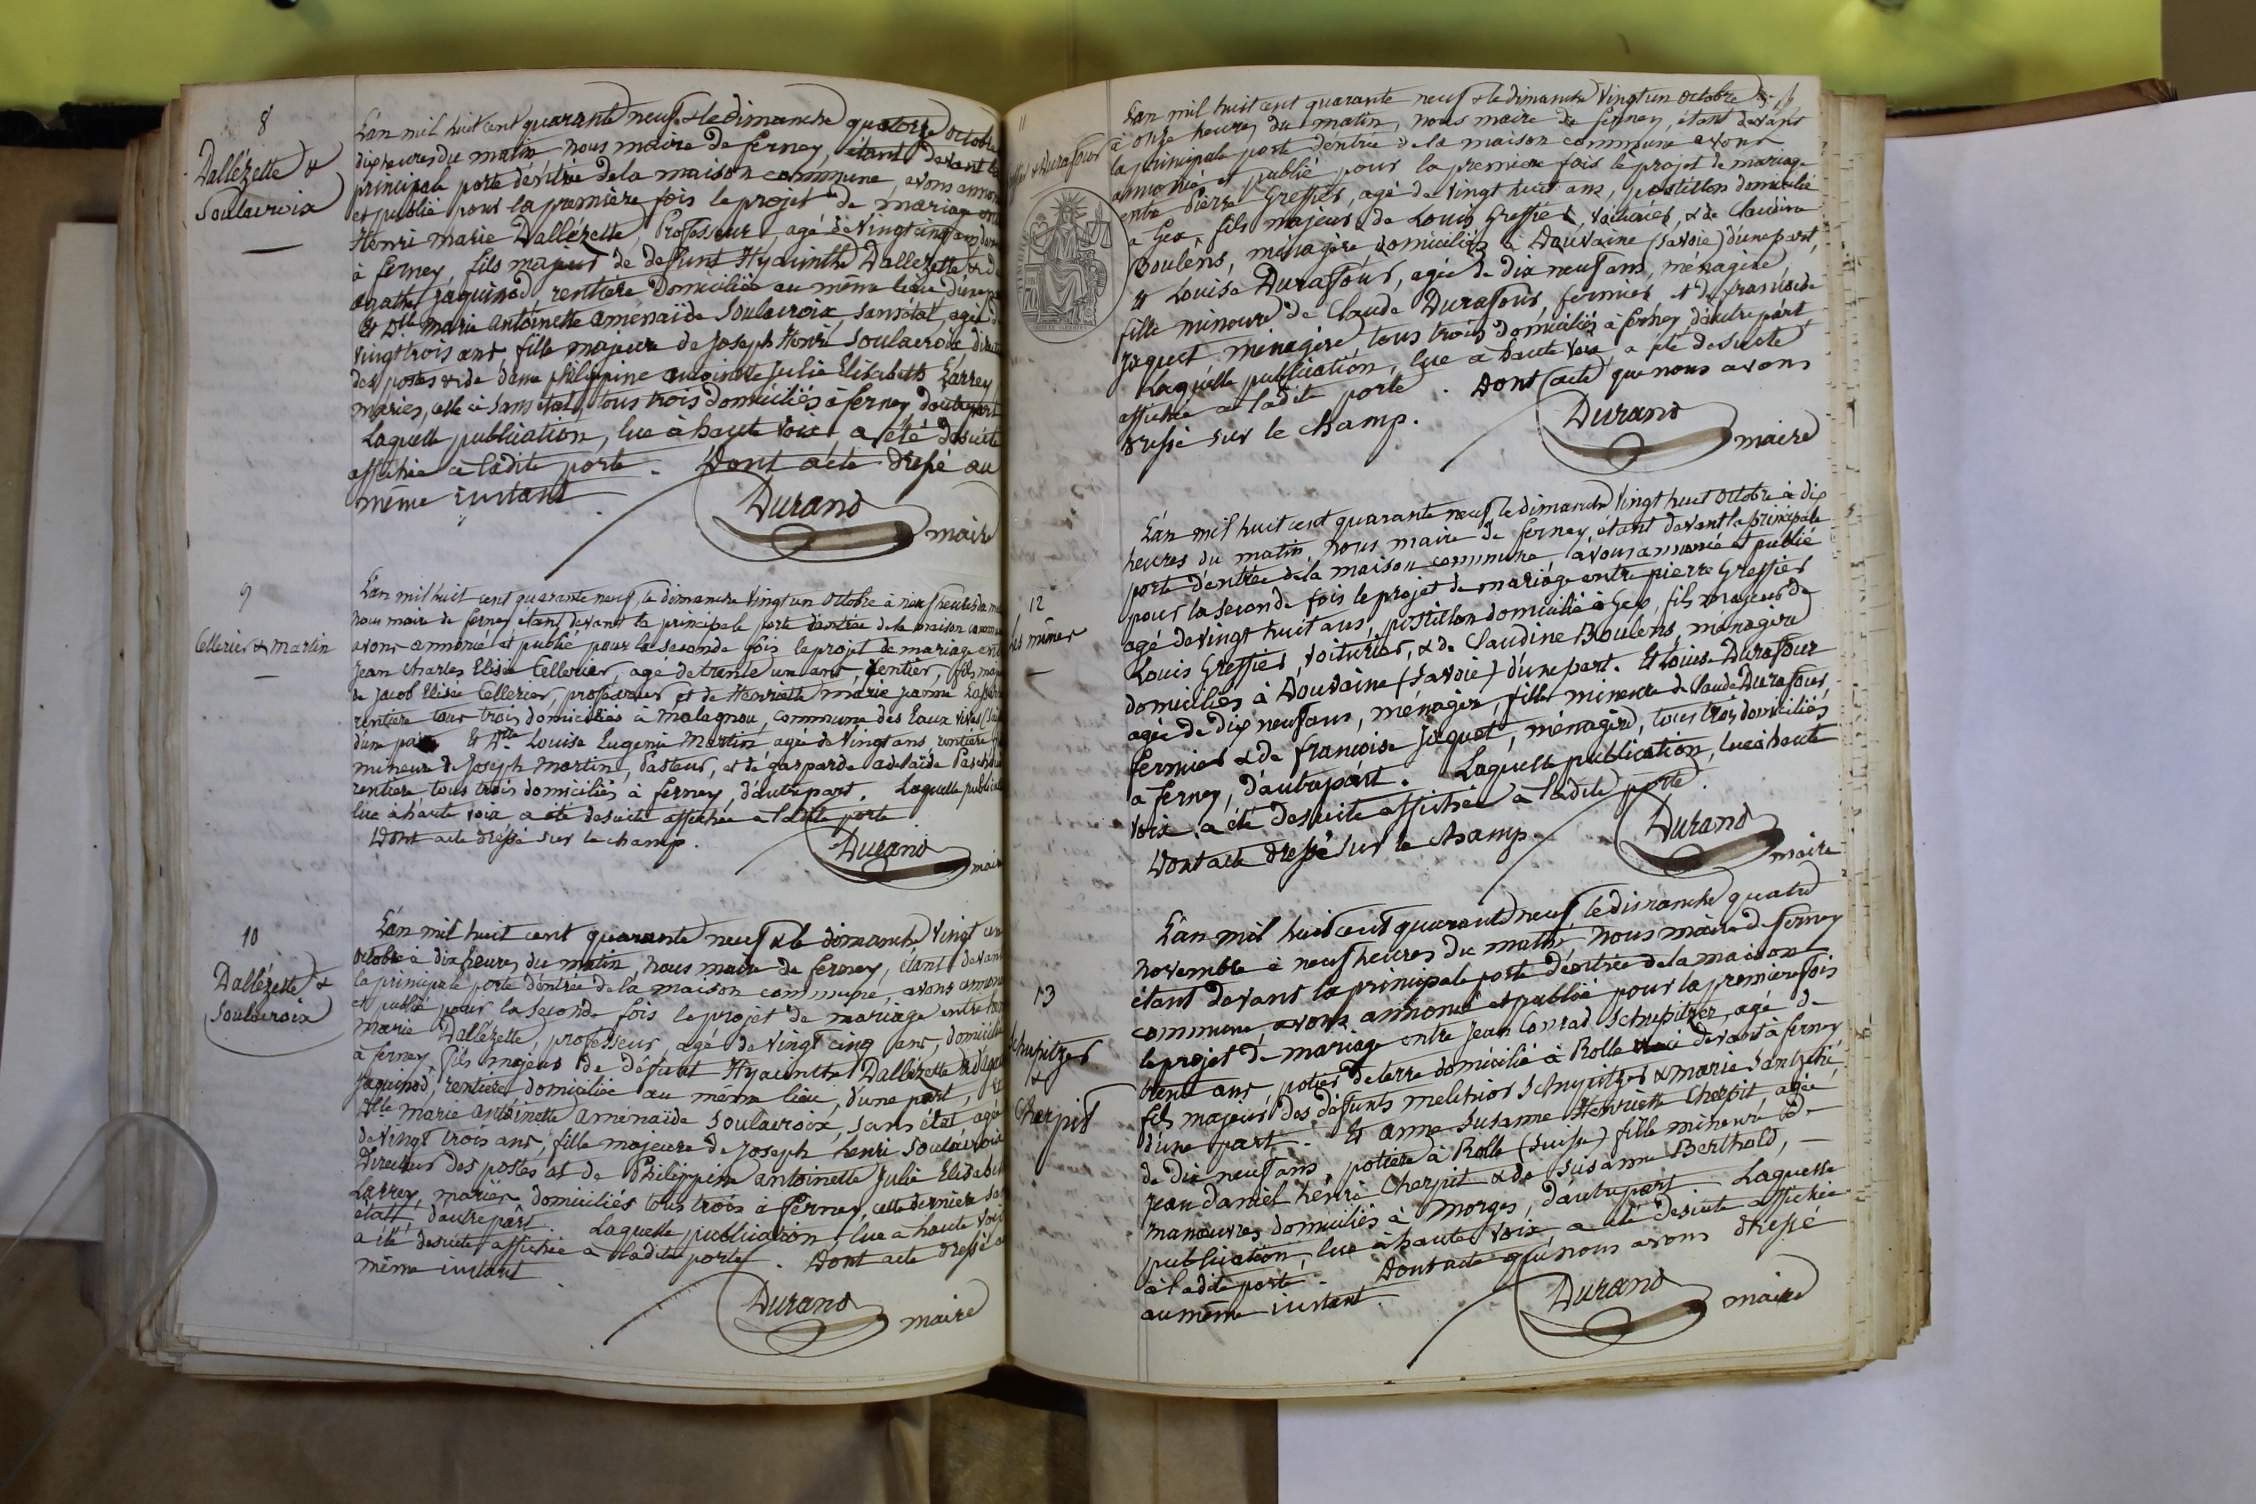 8
Dallézette &
Soulacroix
L'an mil huit cent quarante neuf & le dimanche quatorze octobre
dix heures du matin nous maire de ferney, étant devant la
principale porte d'entrée de la maison commune, avons annon
et publié pour la première fois le projet de mariage
Henri marie Dallézette, Professeur, agé de vingt cinq ans
à ferney, fils majeur de defunt Hyacinthe Dallezette & d
agathe jaquinod, rentière domiciliée au même lieu d'une
Et Dlle marie antoinette aménaïde Soulacroix, sans état, agée d
vingt trois ans, fille majeure de joseph Henri Soulacroix
des postes & de dame philippine antoinette Julie Elisabeth Larrey
mariés, celle ci sans état, tous trois domiciliés à ferney, d'autre part
Laquelle publication, lue à haute voix, a été desuite
affichée à ladite porte. Dont acte dressé au
même instant
Durand
maire
9
Cellerier & Martin
L'an mil huit cent quarante neuf, le dimanche vingt un octobre à neuf heures du
nous maire de ferney étant devant la principale porte d'entrée de la maison comm
avons annoncé et publié pour la seconde fois le projet de mariage
jean Charles Elisée Cellerier, agé de trente un ans, rentier, fils
de jacob Elisée Cellerier, professeur et de Henriette marie jeanne
rentière tous trois domiciliés à malagnou, commune des Eaux vives
d'une part Et Dlle Louise Eugenie Martin agée de vingt ans, rentière
mineure de joseph martin, Pasteur, et de gasparde adelaïde
rentière tous trois domiciliés à ferney, d'autre part. Laquelle public
lue à haute voix a été desuite affichée a ladite porte
Dont acte dressé sur le champ.
Durand
mair
10
Dallézette &
Soulacroix
L'an mil huit cent quarante neuf & le dimanche vingt un
octobre à dix heures du matin, nous maire de ferney, étant devan
la principale porte d'entrée de la maison commune, avons annon
et publié pour la seconde fois le projet de mariage entre
marie Dallézette, professeur agé de vingt cinq ans, domicilié
à ferney, fils majeur de défunt Hyacinthe Dallézette &
jaquinod, rentière domiciliée au même lieu, d'une part, Et
Dlle marie antoinette aménaïde Soulacroix, sans état agée
de vingt trois ans, fille majeure de joseph henri Soulacroix
Directeur des postes et de Philippine antoinette Julie Elisabeth
Larrey, mariés domiciliés tous trois à ferney, cette dernière sa
état, d'autre part. Laquelle publication, lue à haute voix
a été desuite affichée à ladite porte. Dont acte dressé
même instant
Durand
maire
11
& Durafour
L'an mil huit cent quarante neuf & le dimanche vingt un octobre
à onze heures du matin, nous maire de ferney, étant devant
la principale porte d'entrée de la maison commune avons
annoncé et publié pour la première fois le projet de mariage
entre Pierre Greffier, agé de vingt huit ans, postillon domicilié
à Gex, fils majeur de Louis Greffier, voiturier, & de Claudine
Boulens, ménagère domiciliés à Douvaine (Savoie) d'une part,
Et Louise Durafour, agée de dix neuf ans, ménagère
fille mineure de Claude Durafour, fermier et de françoise
jaquet ménagère tous trois domiciliés à ferney, d'autre part
Laquelle publication, lue a haute voix, a été desuite
affichée a ladite porte. Dont acte que nous avons
dressé sur le champ.
Durand
maire
12
Les mêmes
L'an mil huit cent quarante neuf, le dimanche vingt huit octobre à dix
heures du matin, nous maire de ferney, étant devant la principale
porte d'entrée de la maison commune avons annoncé et publié
pour la seconde fois le projet de mariage entre pierre Greffier
agé de vingt huit ans, postillon domicilié à Gex, fils majeur de
Louis Greffier, voiturier, & de Claudine Boulens, ménagère
domiciliés à Douvaine (Savoie) d'une part. Et Louise Durafour
agée de dix neuf ans, ménagère, fille mineure de Claude Durafour,
fermier & de françoise jaquet, ménagère, tous trois domiciliés
a ferney, d'autre part. Laquelle publication, lue à haute
voix a été desuite affichée a ladite porte.
Dont acte dressé sur le champ
Durand
maire
13
Schupitzer
&
Cherpit
L'an mil huit cent quarante neuf, le dimanche quatre
novembre à neuf heures du matin, nous maire de ferney
étant devant la principale porte d'entrée de la maison
commune, avons annoncé et publié pour la première fois
le projet de mariage entre Jean Conrad Schupitzer, agé de
trente ans, potier de terre domicilié à Rolle devant à ferney
fils majeur des défunts melchior Schupitzer & marie
d'une part. Et anne Susanne Henriette Cherpit, agée
de dix neuf ans, potière à Rolle (Suisse) fille mineure de
jean daniel henri Cherpit & de Susanne Berthold,
manœuvres domiciliés à morges, d'autre part Laquelle
publication, lue à haute voix, a été desuite affichée
à ladite porte. Dont acte que nous avons dressé
au même instant.
Durand
maire